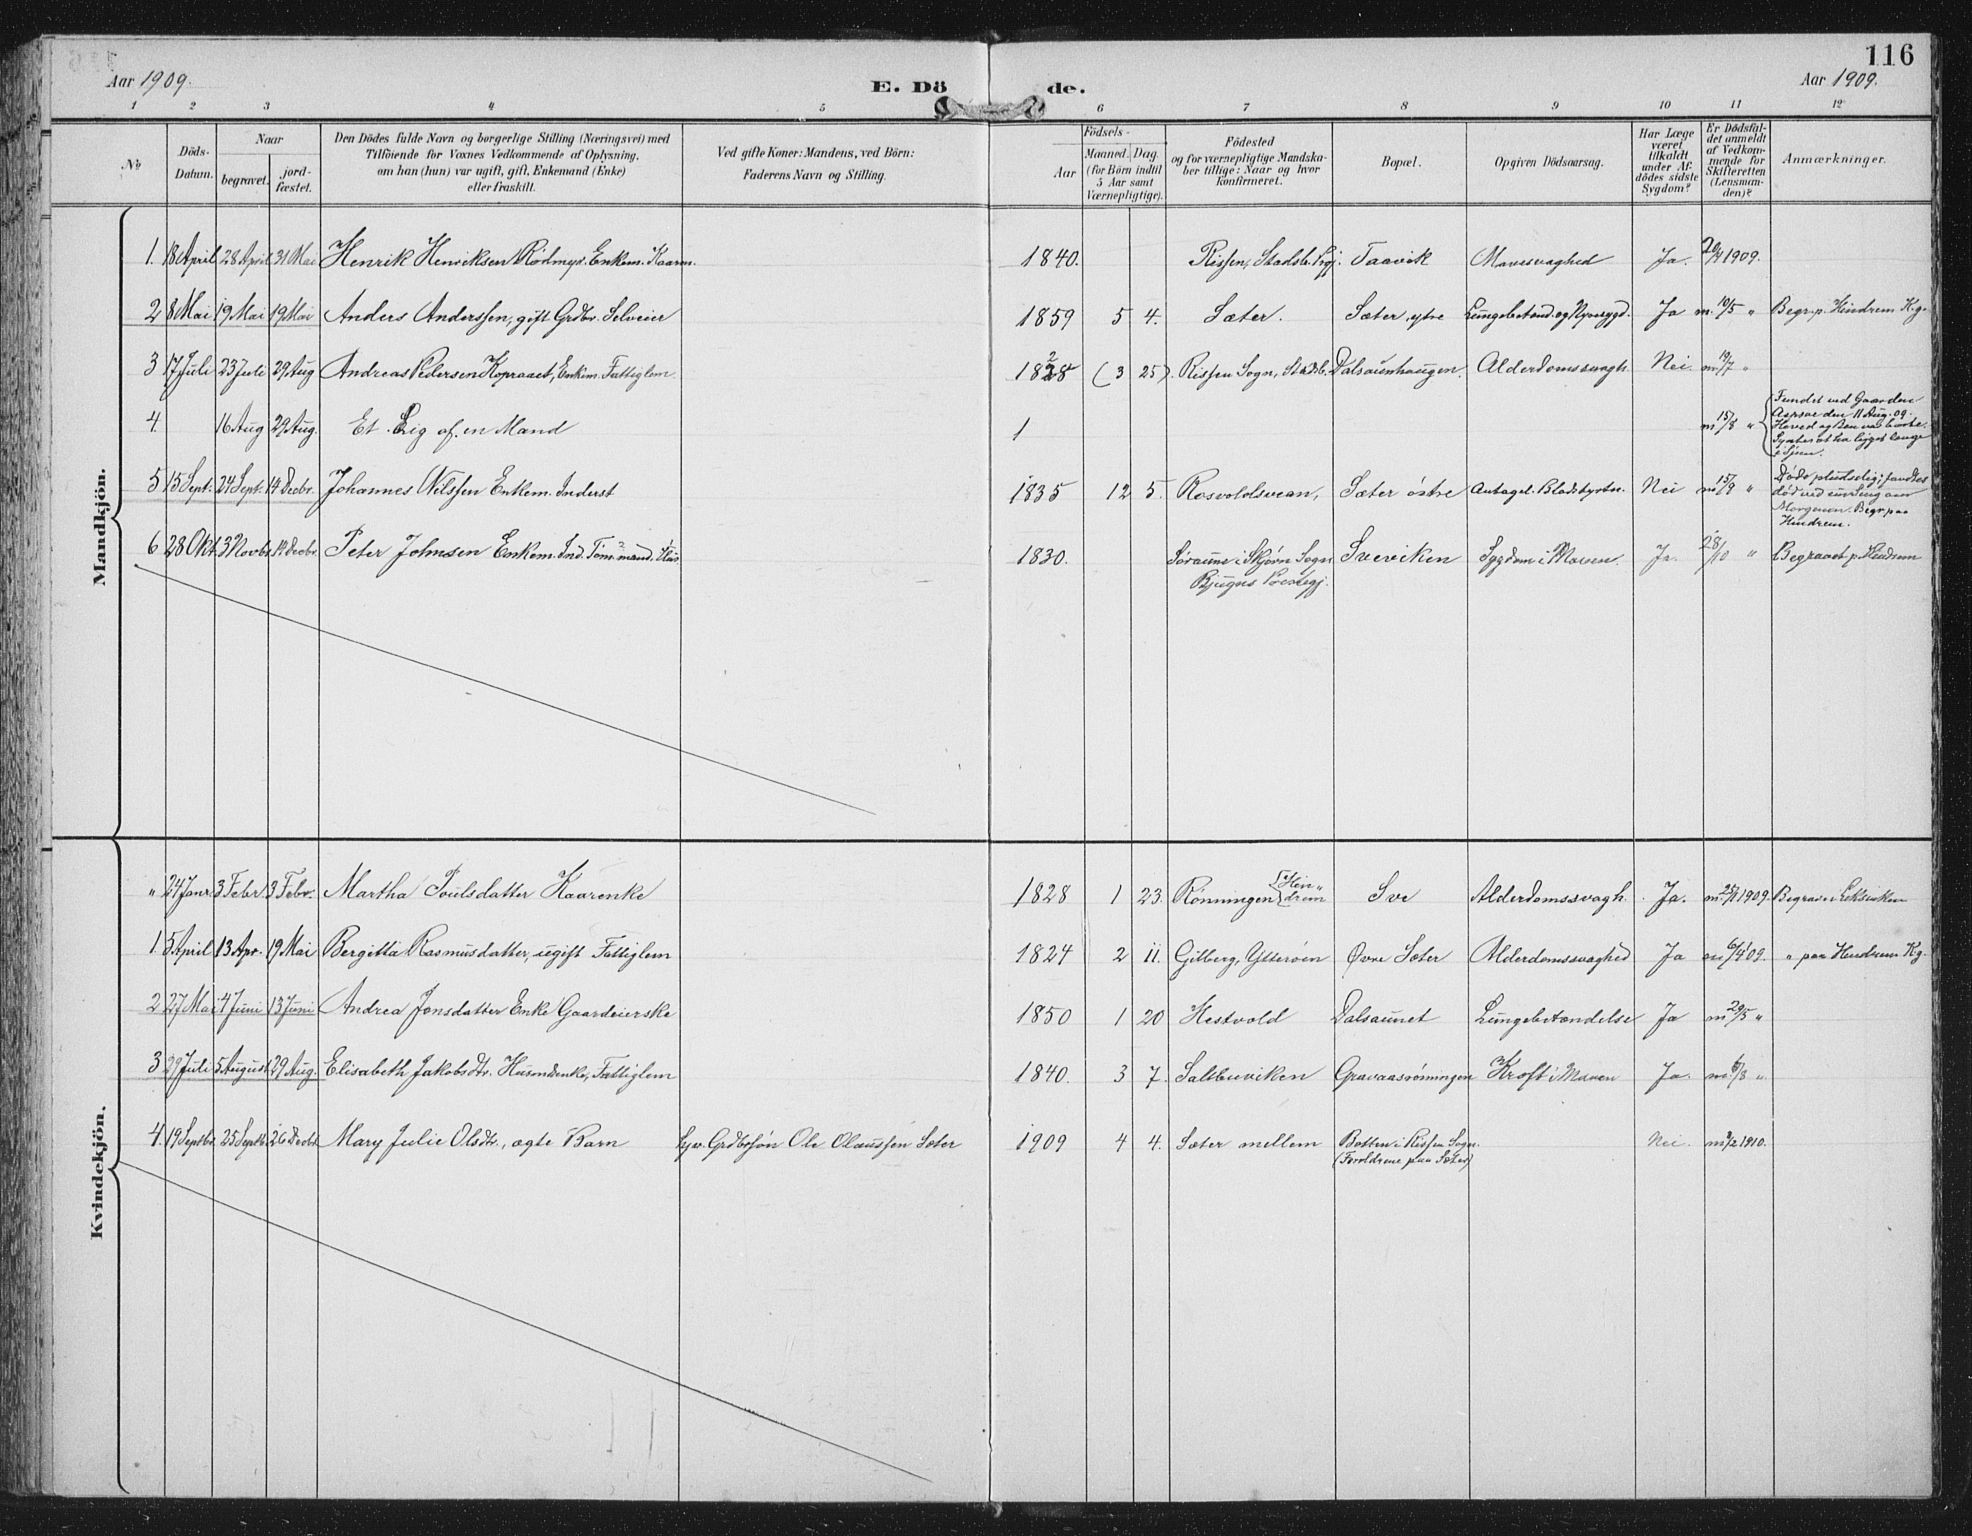 116
Aar 1909. E. Dö de. Aar 1909.
1 2 3 4 5 6 7 8 9 10 11 12
No
Döds-Datum.
Naar
begravet.
jord-fæstet.
Den Dödes fulde Navn og borgerlige Stilling (Næringsvei) med
Tilföiende for Voxnes Vedkommende af Oplysning,
om han (hun) var ugift, gift, Enkemand (Enke)
eller fraskilt.
Ved gifte Koner: Mandens, ved Börn:
Faderens Navn og Stilling.
Födsels-
Aar
Maaned. Dag.
(for Börn indtil
5 Aar samt
Værnepligtige).
Födested
og for værnepligtige Mandska-
ber tillige: Naar og hvor
konfirmeret.
Bopæl.
Opgiven Dödsaarsag.
Har Læge
været
tilkaldt
under Af-
dödes sidste
Sygdom?
Er Dödsfal-
det anmeldt
af Vedkom-
mende for
Skifteretten
(Lensman-
den)?
Anmærkninger.
Mandkjön.
1. 18 April 28 April 31 Mai Henrik Henriksen Rödmyr. Enkem. Kaarm. 1840. Rissen, Stadsb. Pgj. Taavik Mavesvaghed Ja. 20/4 1909.
2 8 Mai 19 Mai 19 Mai Anders Anderssen, gift Grdbr. Selveier 1859 5 4. Sæter. Sæter ytre Lungebetænd. og Nyresygd. Ja m. 10/5 " Begr. p. Hindrem K.g.
3 17 Juli 23 Juli 29 Aug Andreas Pedersen Kopraaet, Enkem. Fattiglem. 1828 (3 25). Rissen Sogn, Stadsb. Dalsaunhaugen. Alderdomssvagh. Nei. m. 19/7 "
4. 16 Aug 29 Aug. Et Lig af en Mand 1 m 15/8 " Fundet ved Gaarden
Aspsve den 11 Aug. 09.
Hoved og Ben var borte.
Syntes at ha ligget længe
i Sjøen.
5 15 Sept. 24 Sept. 14 Decbr. Johannes Nilssen Enkem. Inderst 1835 12 5. Rosvoldsvean, Sæter östre Antagel. Blodstyrtn. Nei m 15/9 " Døde pludselig; fandtes
død ved sin Seng om
Morgenen. Begr. paa
Hindrem.
6 28 Okt. 3 Novbr. 14 Decbr. Peter Johnsen Enkem. Ind. Tømmermand. Hus 1830. Söraune i Skjörn Sogn Sveviken Sygdom i Maven. Ja. 28/10 " Begravet p. Hindrem
Bjugns Præstegj.
Kvindekjön.
" 24 Janr 3 Febr 3 Febr. Martha Poulsdatter Kaarenke 1828 1 23. Rönningen Hindrem Sve Alderdomssvagh. Ja. m. 25/1 1909. Begravet i Leksviken
1. 5 April 13 Apr. 19 Mai Bergitta Rasmusdatter, ugift Fattiglem 1824 2 11. Gilberg, Ytterøen Øvre Sæter Alderdomssvaghed Ja m 6/4 09. " paa Hindrem Kg.
2 27 Mai 4 Juni 13 Juni Andrea Jonsdatter Enke Gaardeierske 1850 1 20 Hestvold Dalsaunet Lungebetændelse Ja m 29/5 "
3 29 Juli 5 August 29 Aug. Elisabeth Jakobsdtr. Husmdsenke, Fattiglem 1840. 3 7. Saltbuviken Gravaasrönningen Kræft i Maven Ja. m. 6/8 "
4. 19 Septbr. 25 Septbr. 26 Decbr. Mary Julie Olsdtr., ægte Barn Gjv. Grdbrsøn Ole Olaussen Sæter 1909 4 4. Sæter mellem Botten i Rissen Sogn. Nei. m 9/2 1910.
(Forældrene paa Sæter)